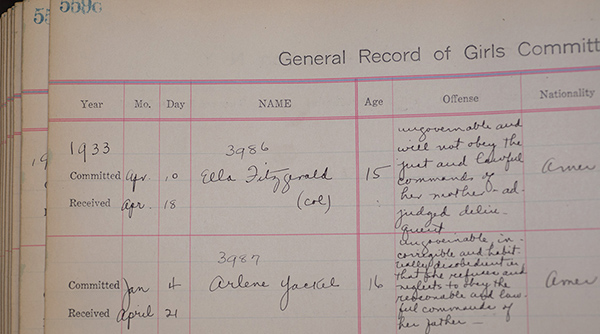 559c
55
General Record of Girls Committ
Year Mo. Day NAME Age Offense Nationality
1933 3986 ungovernable and
will not obey the
just and lawful
Committed Apr. 10 Ella Fitzgerald 15 commands of Amer
her mother - ad-
Received Apr. 18 (col) judged delin-
quent
3987 ungovernable, in-
corrigible and habit-
ually disobedient in
Committed Jan 4 Arlene Yackel 16 that she refuses and Amer
neglects to obey the
reasonable and law-
Received April 21 ful commands of
her father -